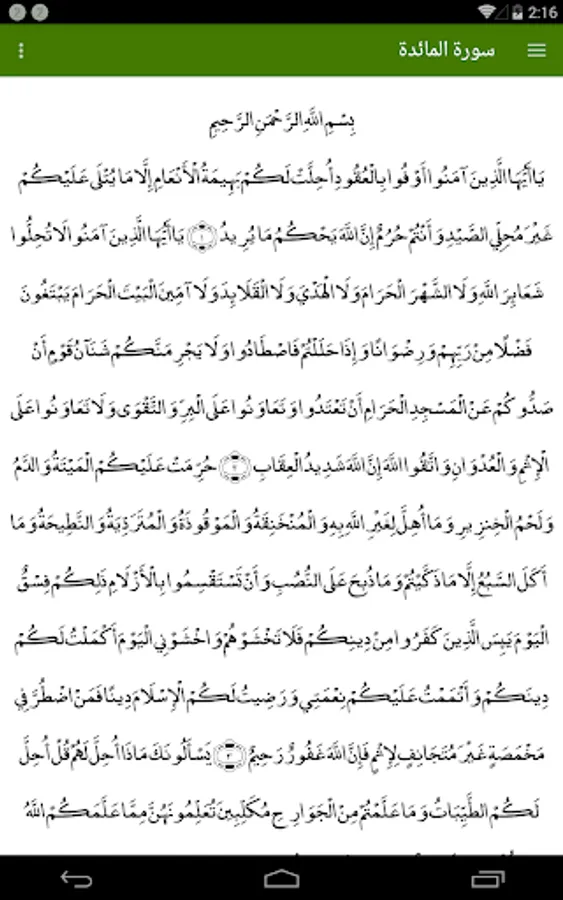 2:16
سورة المائدة
بِسْمِ اللَّهِ الرَّحْمَنِ الرَّحِيمِ
يَا أَيُّهَا الَّذِينَ آمَنُوا أَوْفُوا بِالْعُقُودِ أُحِلَّتْ لَكُمْ بَهِيمَةُ الْأَنْعَامِ إِلَّا مَا يُتْلَى عَلَيْكُمْ
غَيْرَ مُحِلِّي الصَّيْدِ وَأَنْتُمْ حُرُمٌ إِنَّ اللَّهَ يَحْكُمُ مَا يُرِيدُ ﴿١﴾ يَا أَيُّهَا الَّذِينَ آمَنُوا لَا تُحِلُّوا
شَعَايِرَ اللَّهِ وَلَا الشَّهْرَ الْحَرَامَ وَلَا الْهَدْيَ وَلَا الْقَلَايِدَ وَلَا آمِّينَ الْبَيْتَ الْحَرَامَ يَبْتَغُونَ
فَضْلًا مِنْ رَبِّهِمْ وَرِضْوَانًا وَإِذَا حَلَلْتُمْ فَاصْطَادُوا وَلَا يَجْرِمَنَّكُمْ شَنَآنُ قَوْمٍ أَنْ
صَدُّوكُمْ عَنِ الْمَسْجِدِ الْحَرَامِ أَنْ تَعْتَدُوا وَتَعَاوَنُوا عَلَى الْبِرِّ وَالتَّقْوَى وَلَا تَعَاوَنُوا عَلَى
الْإِثْمِ وَالْعُدْوَانِ وَاتَّقُوا اللَّهَ إِنَّ اللَّهَ شَدِيدُ الْعِقَابِ ﴿٢﴾ حُرِّمَتْ عَلَيْكُمُ الْمَيْتَةُ وَالدَّمُ
وَلَحْمُ الْخِنزِيرِ وَمَا أُهِلَّ لِغَيْرِ اللَّهِ بِهِ وَالْمُنْخَنِقَةُ وَالْمَوْقُوذَةُ وَالْمُتَرَدِّيَةُ وَالنَّطِيحَةُ وَمَا
أَكَلَ السَّبُعُ إِلَّا مَا ذَكَّيْتُمْ وَمَا ذُبِحَ عَلَى النُّصُبِ وَأَنْ تَسْتَقْسِمُوا بِالْأَزْلَامِ ذَلِكُمْ فِسْقٌ
الْيَوْمَ يَيِسَ الَّذِينَ كَفَرُوا مِنْ دِينِكُمْ فَلَا تَخْشَوْهُمْ وَاخْشَوْنِي الْيَوْمَ أَكْمَلْتُ لَكُمْ
دِينَكُمْ وَأَتْمَمْتُ عَلَيْكُمْ نِعْمَتِي وَرَضِيتُ لَكُمُ الْإِسْلَامَ دِينًا فَمَنْ اضْطُرَّ فِي
مَخْمَصَةٍ غَيْرَ مُتَجَانِفٍ لِإِثْمٍ فَإِنَّ اللَّهَ غَفُورٌ رَحِيمٌ ﴿٣﴾ يَسْأَلُونَكَ مَاذَا أُحِلَّ لَهُمْ قُلْ أُحِلَّ
لَكُمُ الطَّيِّبَاتُ وَمَا عَلَّمْتُمْ مِنَ الْجَوَارِحِ مُكَلِّبِينَ تُعَلِّمُونَهُنَّ مِمَّا عَلَّمَكُمُ اللَّهُ